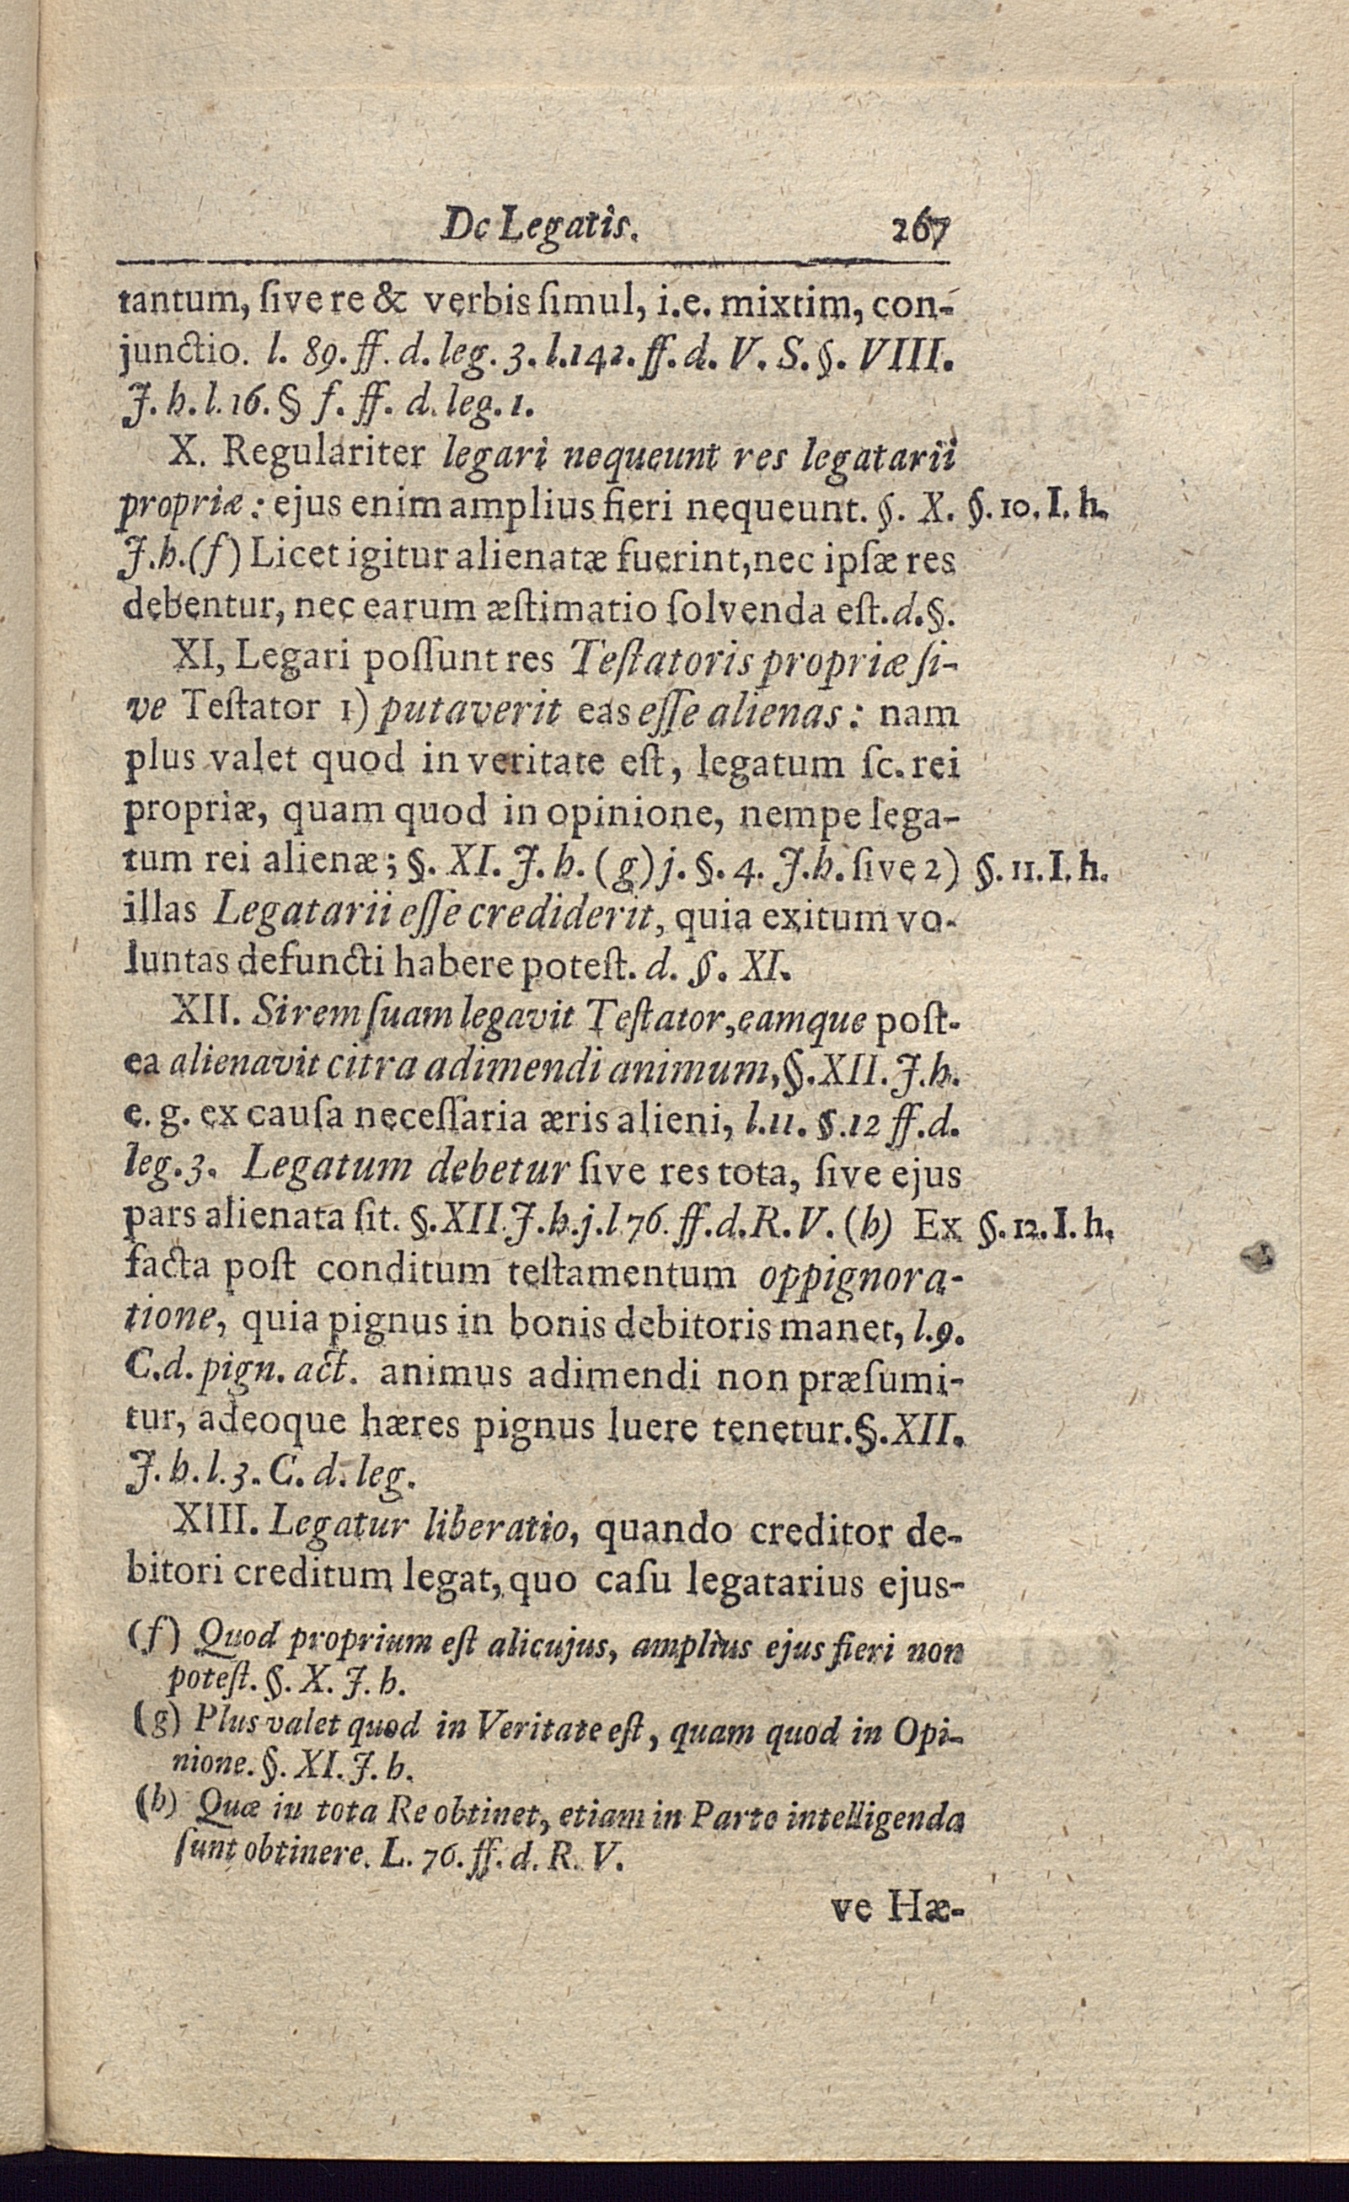 De Legatis. 267
tantum, ſive re & verbis ſimul, i.e. mixtim, con-
junctio. l. 89. ff. d. leg. 3. l. 142. ff. d. V. S. §. VIII.
J. h. l. 16. § f. ff. d. leg. 1.
X. Regulariter legari nequeunt res legatarii
propriæ: ejus enim amplius fieri nequeunt. §. X. §. 10. I. h.
J. h. (f) Licet igitur alienatæ fuerint, nec ipſæ res
debentur, nec earum æſtimatio ſolvenda eſt. d. §.
XI, Legari poſſunt res Teſtatoris propriæ ſi-
ve Teſtator 1) putaverit eas eſſe alienas: nam
plus valet quod in veritate eſt, legatum ſc. rei
propriæ, quam quod in opinione, nempe lega-
tum rei alienæ; §. XI. J. h. (g) j. §. 4. J. h. ſive 2) §. 11. I. h.
illas Legatarii eſſe crediderit, quia exitum vo-
luntas defuncti habere poteſt. d. §. XI.
XII. Si rem ſuam legavit Teſtator, eamque poſt-
ea alienavit citra adimendi animum, §. XII. J. h.
e. g. ex cauſa neceſſaria æris alieni, l. 11. §. 12 ff. d.
leg. 3. Legatum debetur ſive res tota, ſive ejus
pars alienata ſit. §. XII. J. h. j. l 76. ff. d. R. V. (h) Ex §. 12. I. h.
facta poſt conditum teſtamentum oppignora-
tione, quia pignus in bonis debitoris manet, l. 9.
C. d. pign. act. animus adimendi non præſumi-
tur, adeoque hæres pignus luere tenetur. §. XII.
J. h. l. 3. C. d. leg.
XIII. Legatur liberatio, quando creditor de-
bitori creditum legat, quo caſu legatarius ejus-
(f) Quod proprium eſt alicujus, amplius ejus fieri non
poteſt. §. X. J. h.
(g) Plus valet quod in Veritate eſt, quam quod in Opi-
nione. §. XI. J. h.
(h) Quæ in tota Re obtinet, etiam in Parte intelligenda
ſunt obtinere. L. 76. ff. d. R. V.
ve Hæ-